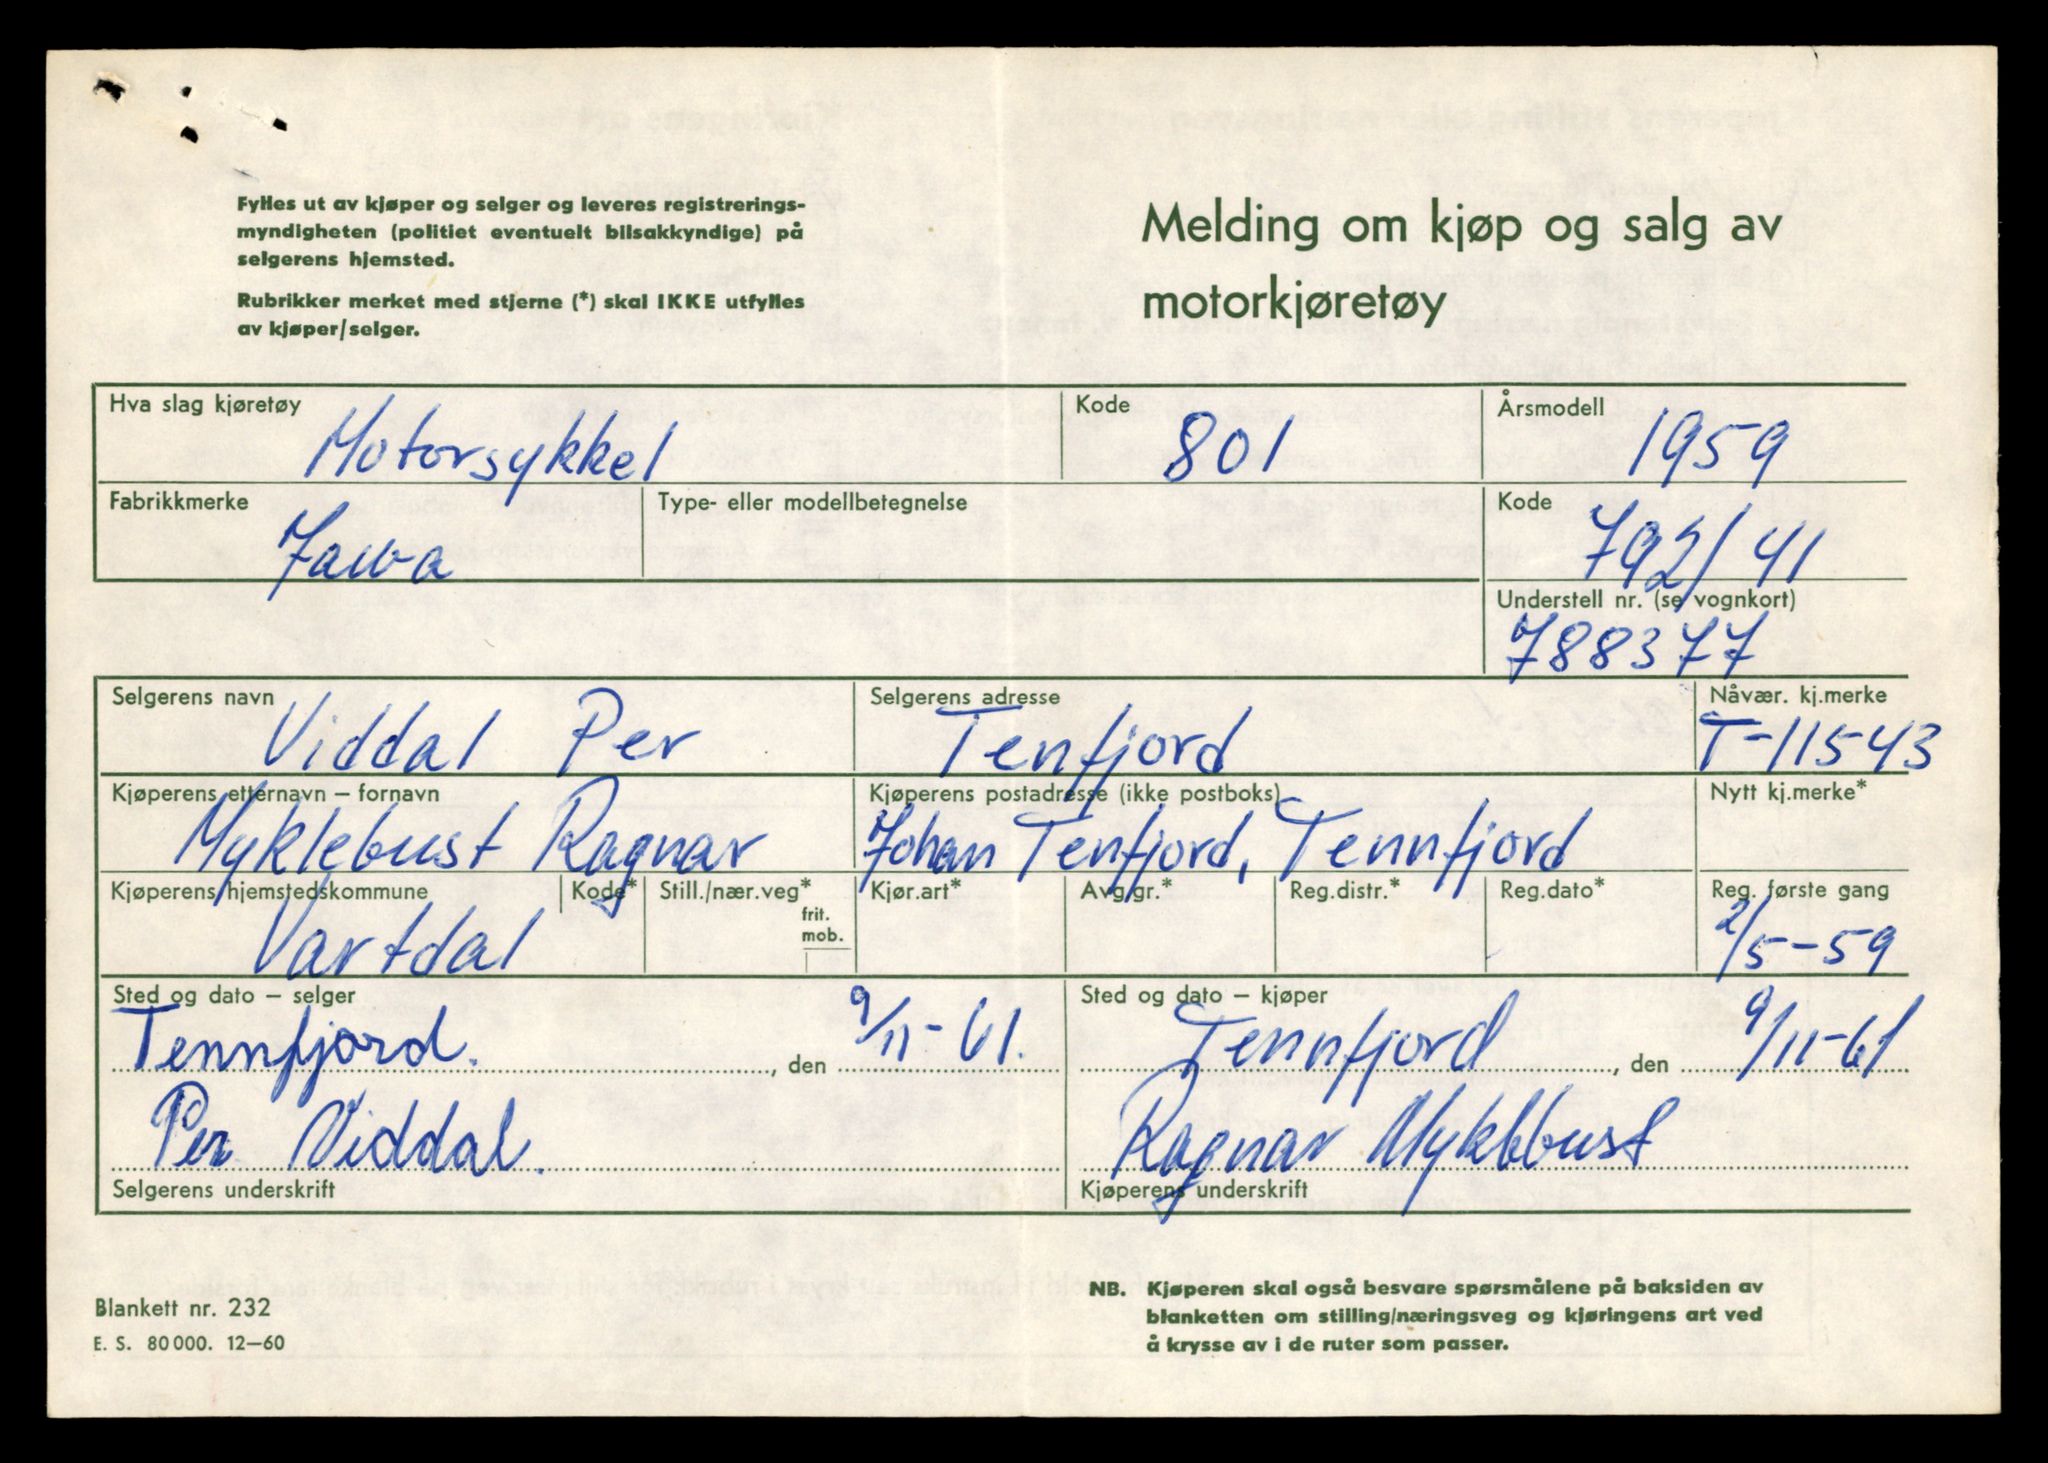 Fylles ut av kjøper og selger og leveres registrerings-
myndigheten (politiet eventuelt bilsakkyndige) på
selgerens hjemsted.
Rubrikker merket med stjerne (*) skal IKKE utfylles
av kjøper/selger.
Melding om kjøp og salg av
motorkjøretøy
Hva slag kjøretøy
Motorsykkel
Kode
801
Årsmodell
1959
Fabrikkmerke
Jawa
Type- eller modellbetegnelse
Kode
792/41
Understell nr. (se vognkort)
788377
Selgerens navn
Viddal Per
Selgerens adresse
Tenfjord
Nåvær. kj.merke
T-11543
Kjøperens etternavn – fornavn
Myklebust Ragnar
Kjøperens postadresse (ikke postboks)
Johan Tenfjord, Tennfjord
Nytt kj.merke*
Kjøperens hjemstedskommune
Vartdal
Kode*
Still./nær.veg*
frit.
mob.
Kjør.art*
Avg.gr.*
Reg.distr.*
Reg.dato*
Reg. første gang
2/5-59
Sted og dato – selger
Tennfjord. , den 9/11-61.
Per Viddal.
Selgerens underskrift
Sted og dato – kjøper
Tennfjord , den 9/11-61
Ragnar Myklebust
Kjøperens underskrift
Blankett nr. 232
E. S. 80 000. 12–60
NB. Kjøperen skal også besvare spørsmålene på baksiden av
blanketten om stilling/næringsveg og kjøringens art ved
å krysse av i de ruter som passer.